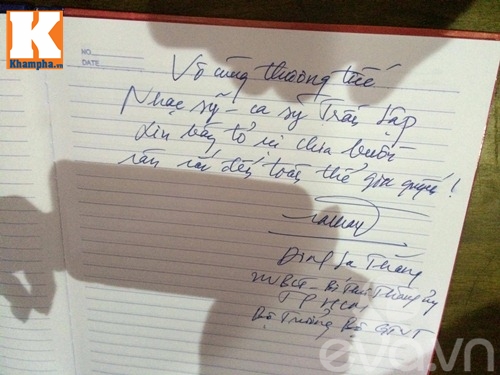 K
Khampha.vn
NO.
DATE
Vô cùng thương tiếc
Nhạc sỹ - ca sỹ Trần Lập
Xin bày tỏ sự chia buồn
sâu sắc đến toàn thể gia quyến!
Đinh La Thăng
UVBCT - Bí Thư Thành ủy
TP HCM
Bộ Trưởng Bộ GTVT
eva.vn